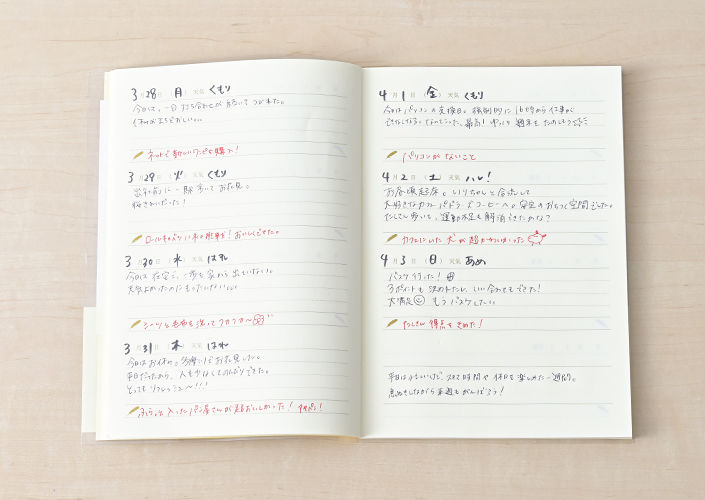 3月28日（月）天気 くもり
今日は、一日 打ち合わせが 続いて つかれた。
ネットで 新しいワンピを 購入！
3月29日（火）天気 くもり
出社前に一駅歩いてお花見。
桜きれいだった！
ロールキャベツ に 初 挑戦！おいしくできた。
3月30日（水）天気 はれ
今日は 在宅で、一歩も家から 出ていない。
天気よかったのにもったいない…
シーツと毛布を洗ってフカフカ〜
3月31日（木）天気 はれ
今日はお休み。お花見した。
平日だったから、人も少なくてのんびりできた。
とってもリフレッシュ〜!!
入ったパン屋さんが超おいしかった！
4月1日（金）天気 くもり
今日はパソコンの交換日。強制的に16時から仕事が
できなくなるってなっていた、最高！ゆっくり 週末を たのしもう
パソコンがないこと
4月2日（土）天気 ハレ！
お昼頃起床。いりちゃんと合流して
大好きなカフェ バドラーズコーヒーへ。安定のおちつく空間でした。
たくさん歩いて、運動不足も解消できたかな？
カフェにいた 犬が 超かわいかった
4月3日（日）天気 あめ
バスケ行った！
3ポイントも決めれたし、いい合わせもできた！
大満足 もうバスケしたい。
たくさん 得点をきめた！
平日は忙しいけど、時間や休日を楽しめた一週間。
息ぬきしながら来週もがんばろう！